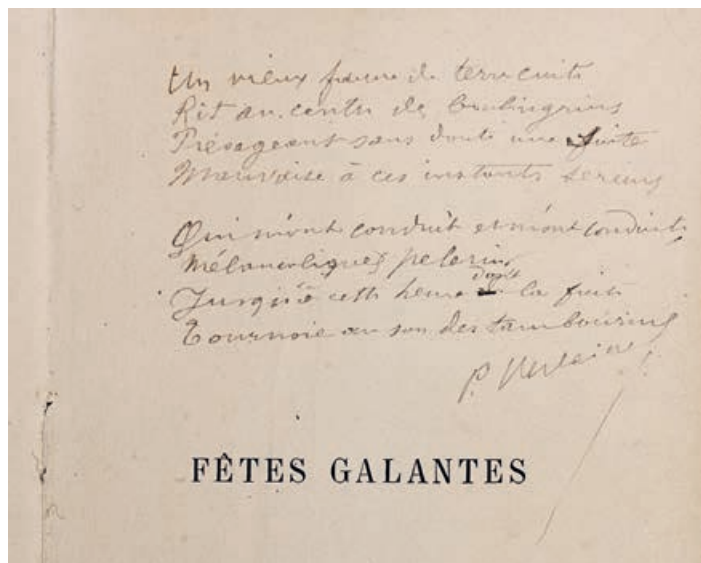 Un vieux faune de terre cuite
Rit au centre des boulingrins
Présageant sans doute une suite
Mauvaise à ces instants sereins
Qui m'ont conduit et m'ont conduite
Mélancoliques pelerins
Jusqu'à cette heure dont la fuite
Tournoie au son des tambourins
P. Verlaine
FÊTES GALANTES